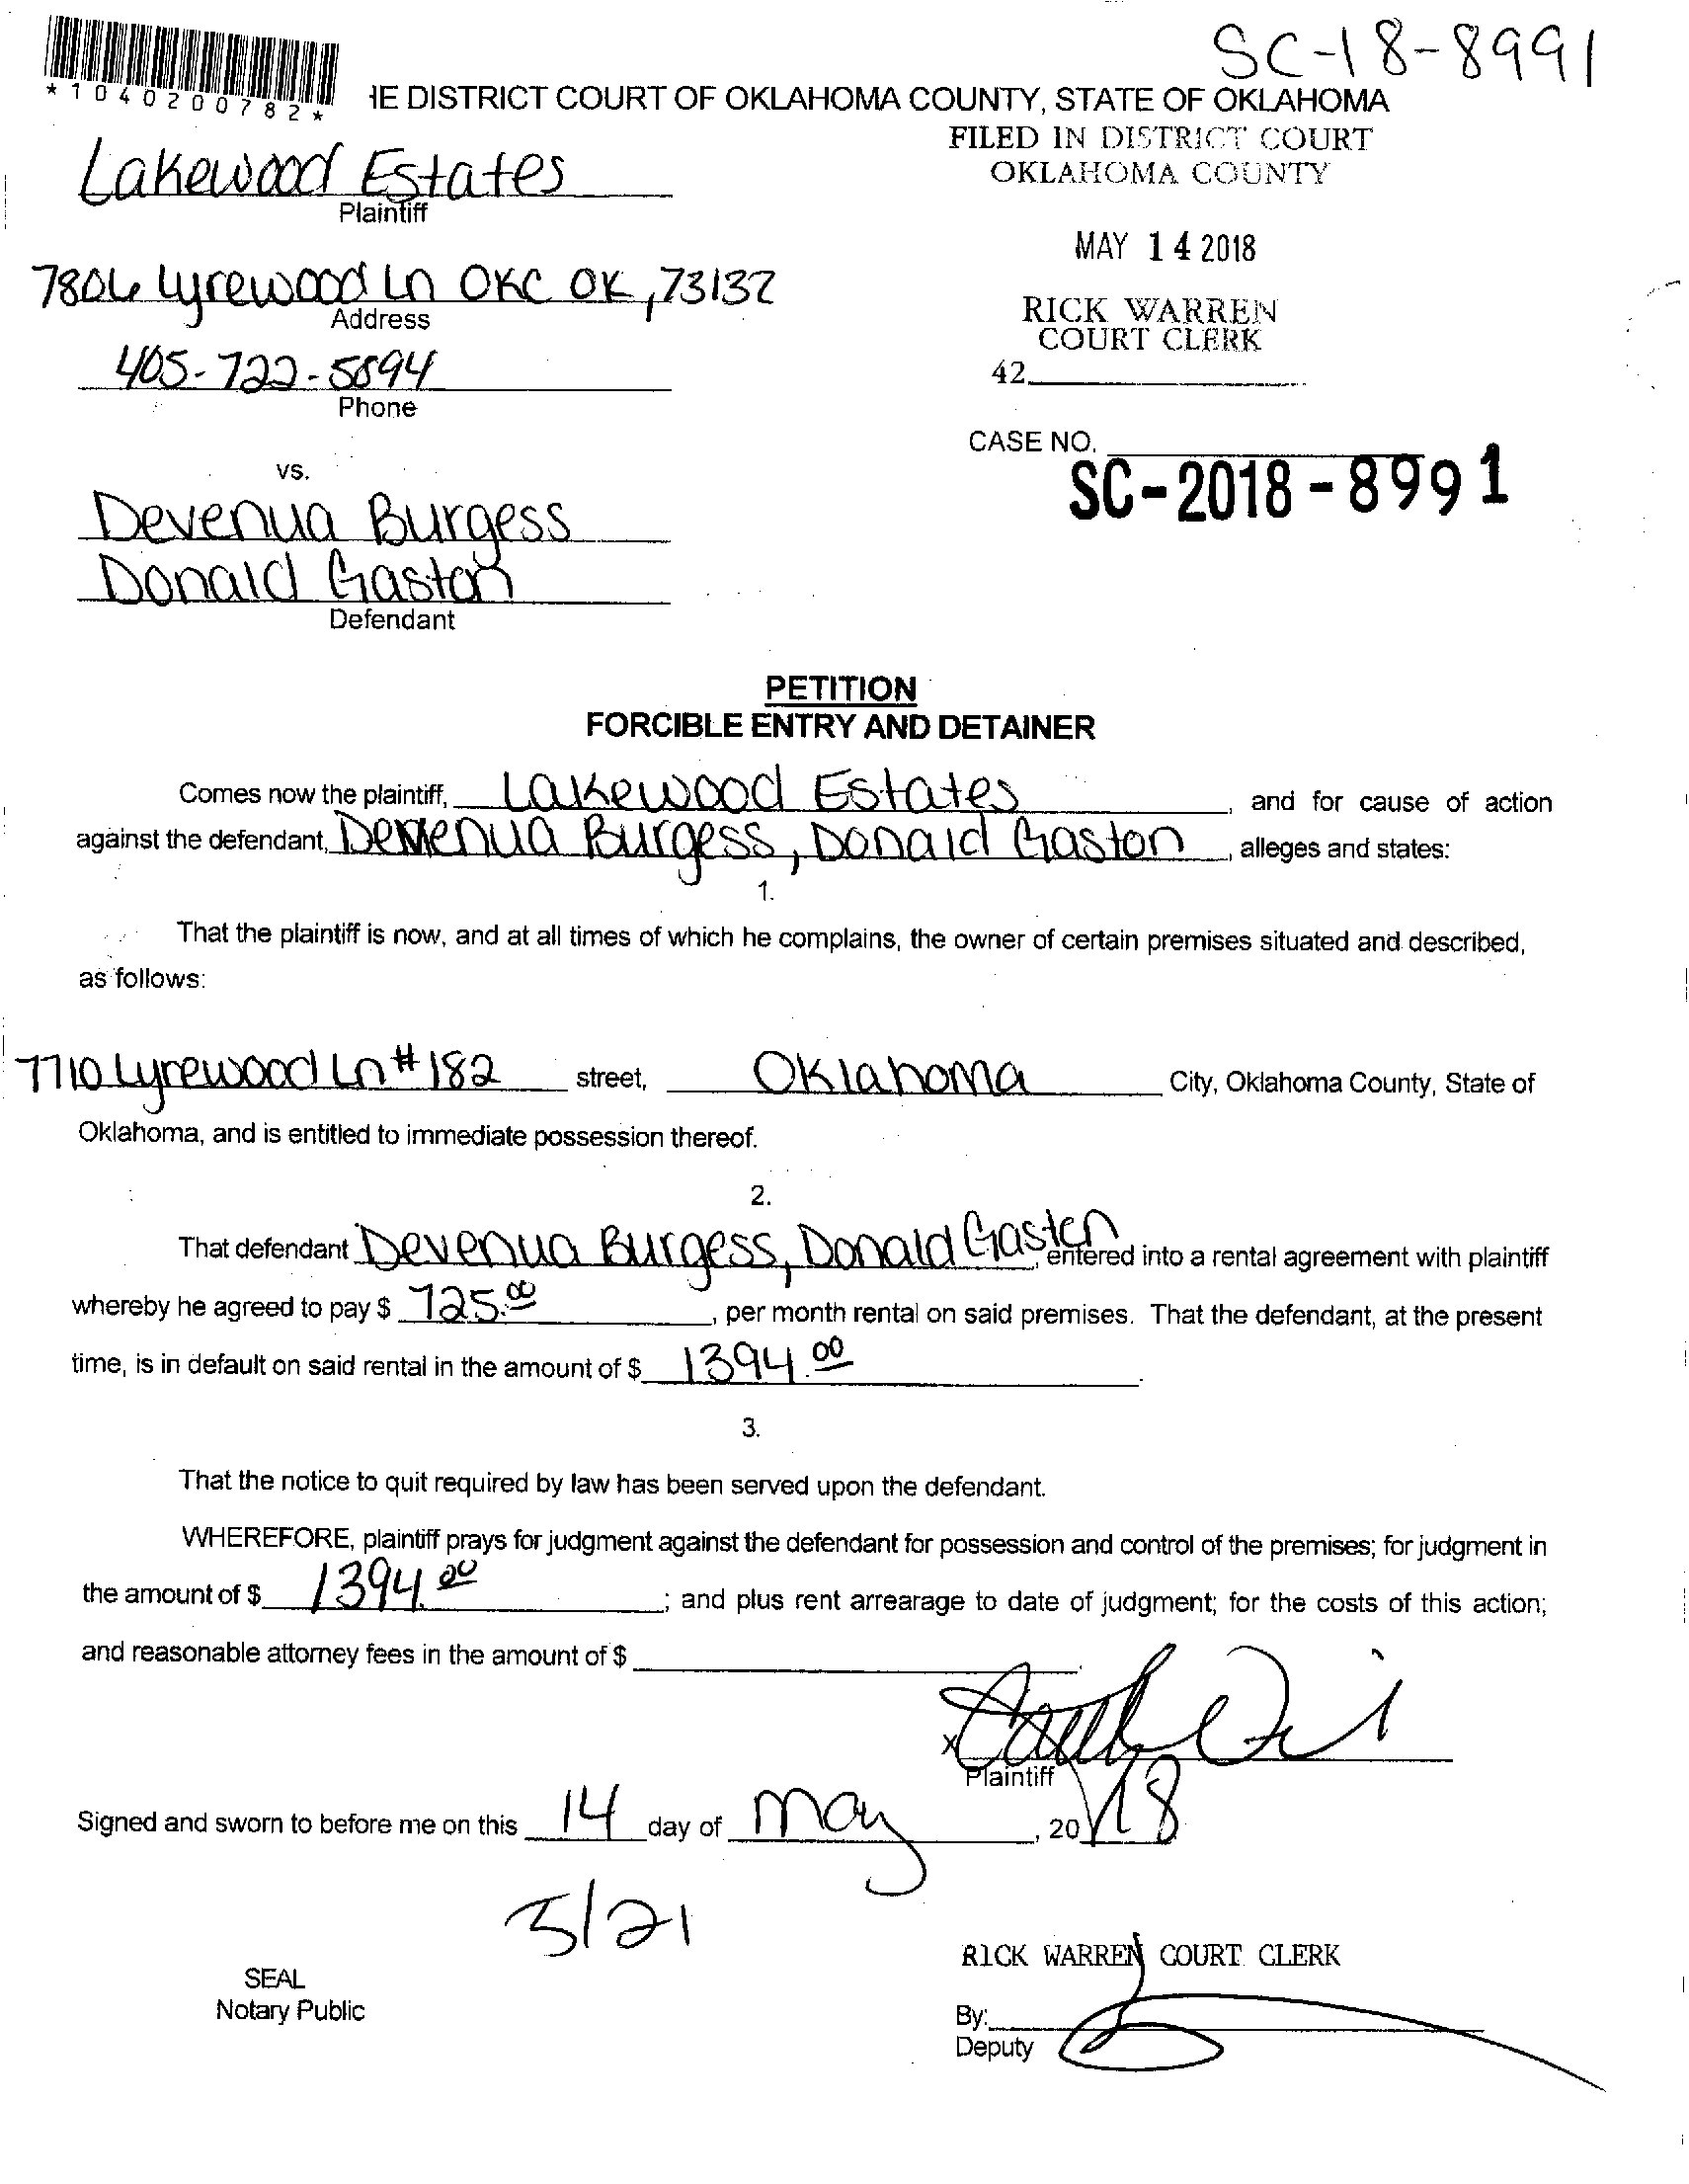 SC-18-8991
*1040200782*
HE DISTRICT COURT OF OKLAHOMA COUNTY, STATE OF OKLAHOMA
FILED IN DISTRICT COURT
OKLAHOMA COUNTY
Lakewood Estates
Plaintiff
MAY 14 2018
7806 Lyrewood Ln OKC OK, 73132
Address
RICK WARREN
COURT CLERK
405-722-5894
Phone
42
CASE NO.
SC-2018-8991
vs.
Devenua Burgess
Donald Gaston
Defendant
PETITION
FORCIBLE ENTRY AND DETAINER
Comes now the plaintiff, Lakewood Estates, and for cause of action
against the defendant, Devenua Burgess, Donald Gaston, alleges and states:
1.
That the plaintiff is now, and at all times of which he complains, the owner of certain premises situated and described,
as follows:
7710 Lyrewood Ln #182 street, Oklahoma City, Oklahoma County, State of
Oklahoma, and is entitled to immediate possession thereof.
2.
That defendant Devenua Burgess, Donald Gaston, entered into a rental agreement with plaintiff
whereby he agreed to pay $ 725.00, per month rental on said premises. That the defendant, at the present
time, is in default on said rental in the amount of $ 1394.00.
3.
That the notice to quit required by law has been served upon the defendant.
WHEREFORE, plaintiff prays for judgment against the defendant for possession and control of the premises; for judgment in
the amount of $ 1394.00; and plus rent arrearage to date of judgment; for the costs of this action;
and reasonable attorney fees in the amount of $ .
X
Plaintiff
Signed and sworn to before me on this 14 day of May, 2018
5/21
RICK WARREN COURT CLERK
SEAL
Notary Public
By:
Deputy